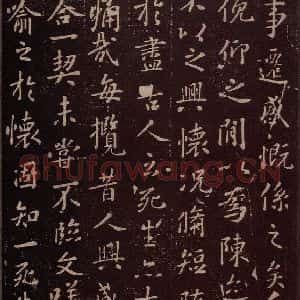 事遷感慨係之矣
俛仰之間以為陳迹
不以之興懷況脩短隨
於盡古人云死生亦大
痛哉每攬昔人興感
合一契未嘗不臨文嗟
喻之於懷固知一死生
Shufawang.CN